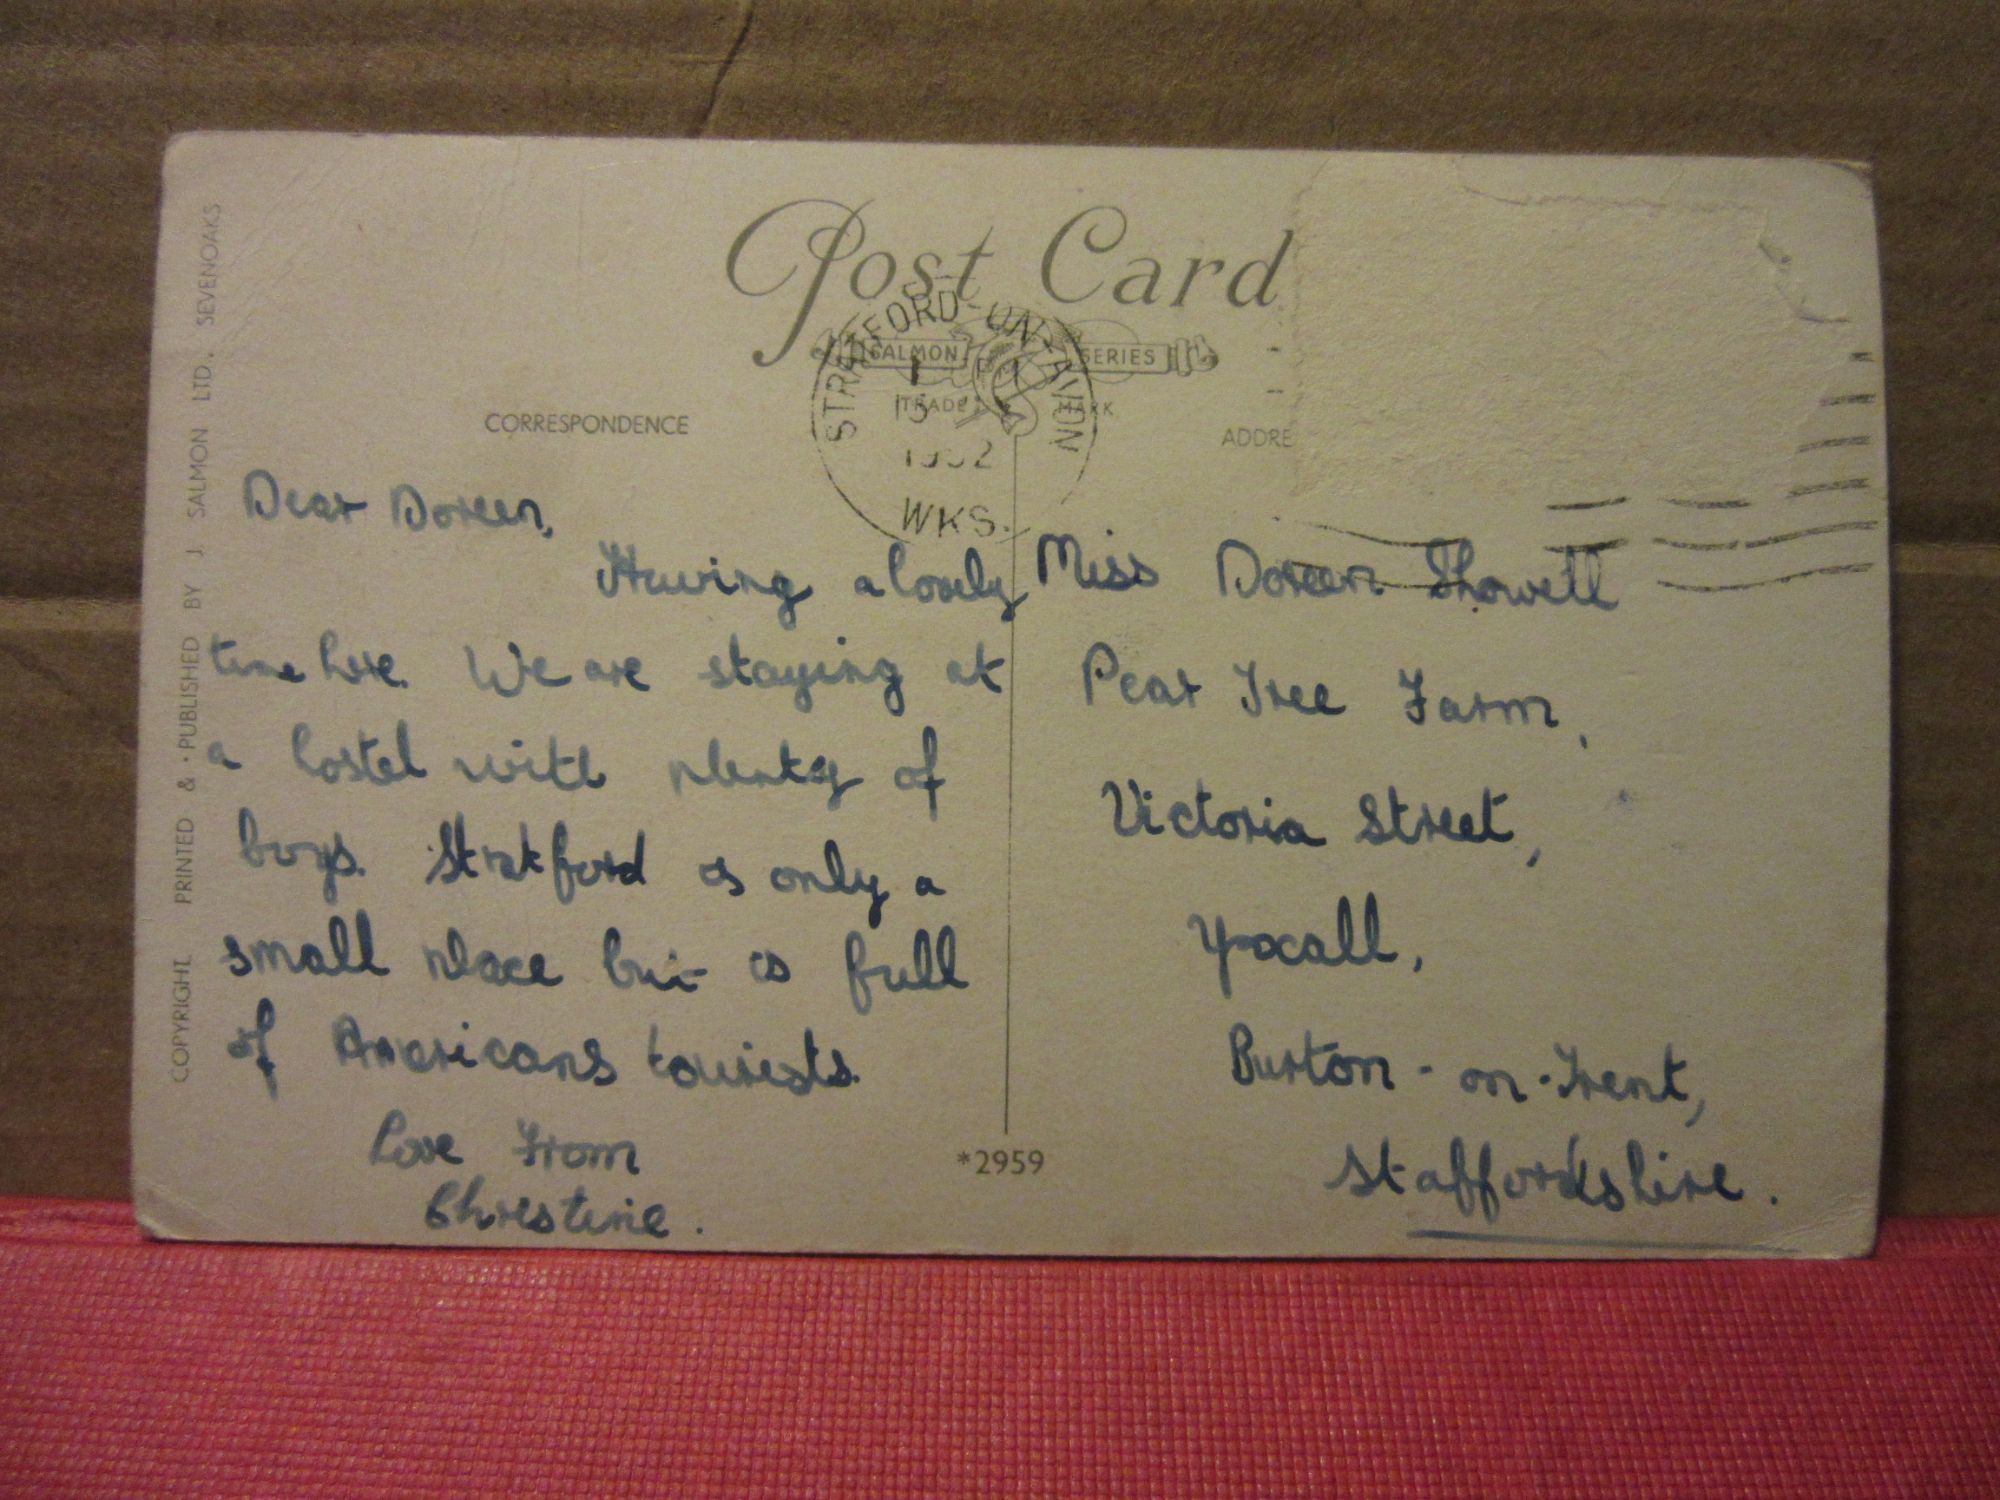 Post Card
SALMON SERIES
TRADE MARK
STRATFORD-ON-AVON
WKS.
CORRESPONDENCE
ADDRE
Dear Doreen,
Having a lovely
time here. We are staying at
a hostel with plenty of
boys. Stratford is only a
small place but is full
of Americans tourists.
Love From
Christine.
Miss Doreen Showell
Pear Tree Farm,
Victoria Street,
Yoxall,
Burton-on-Trent,
Staffordshire.
*2959
COPYRIGHT. PRINTED & PUBLISHED BY J. SALMON LTD., SEVENOAKS